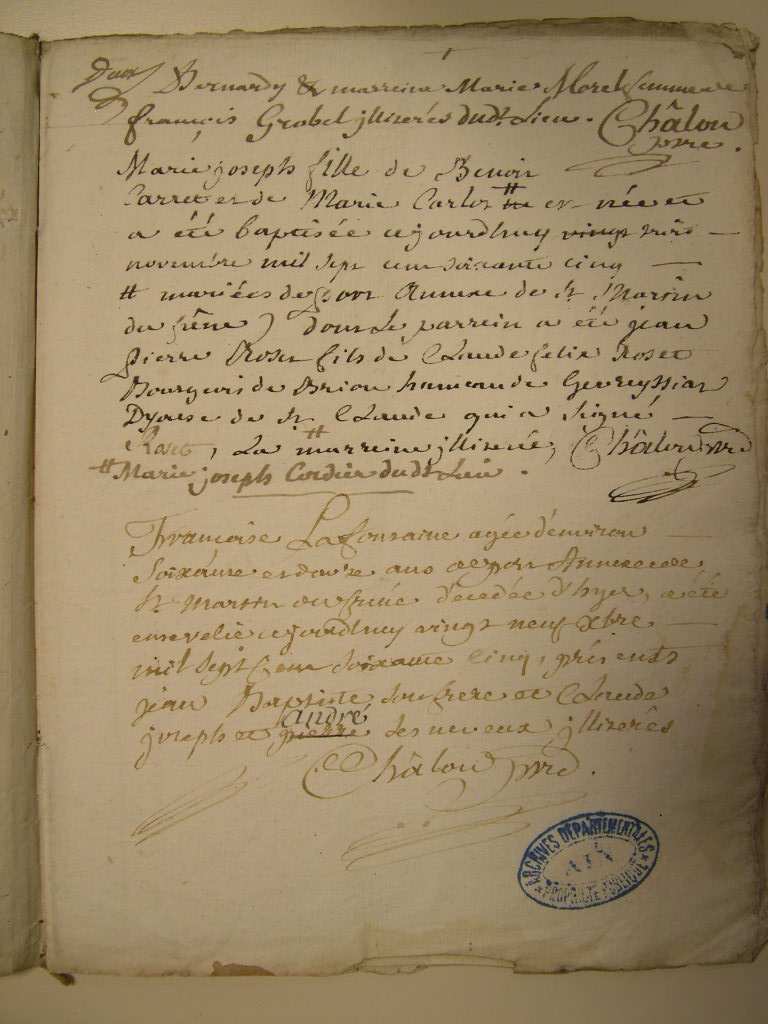 Bernardy & marreine Marie Morel femme de
françois Grobel jlliterés dudt Lieu. Châlon
pvre.
Marie joseph fille de Benoit
Carret et de Marie Carlot ⧺ est née et
a été baptisée cejourdhuy vingt trois
novembre mil sept cent soixante cinq
⧺ mariées de port Annexe de St Martin
du frêne) dont Le parrein a été jean
pierre Roset fils de Claude felix Roset
Bourgeois de Brion hameau de Gevreyssiat
Dyocese de St Claude qui a signé
Roset, La ⧺ marreine jlliterée, Châlon pvre
⧺ Marie joseph Cordier dudt Lieu.
Françoise Lafontaine agée denviron
Soixante et douze ans de port Annexe de
St Martin du frêne décedée d'hyer, a été
ensevelie cejourdhuy vingt neuf Xbre
mil sept Cent soixante Cinq, présents
jean Baptiste son frere et Claude
andré
joseph et pierre ses neveux jlliterés
Châlon pvre.
ARCHIVES DÉPARTEMENTALES
PROPRIÉTÉ PUBLIQUE